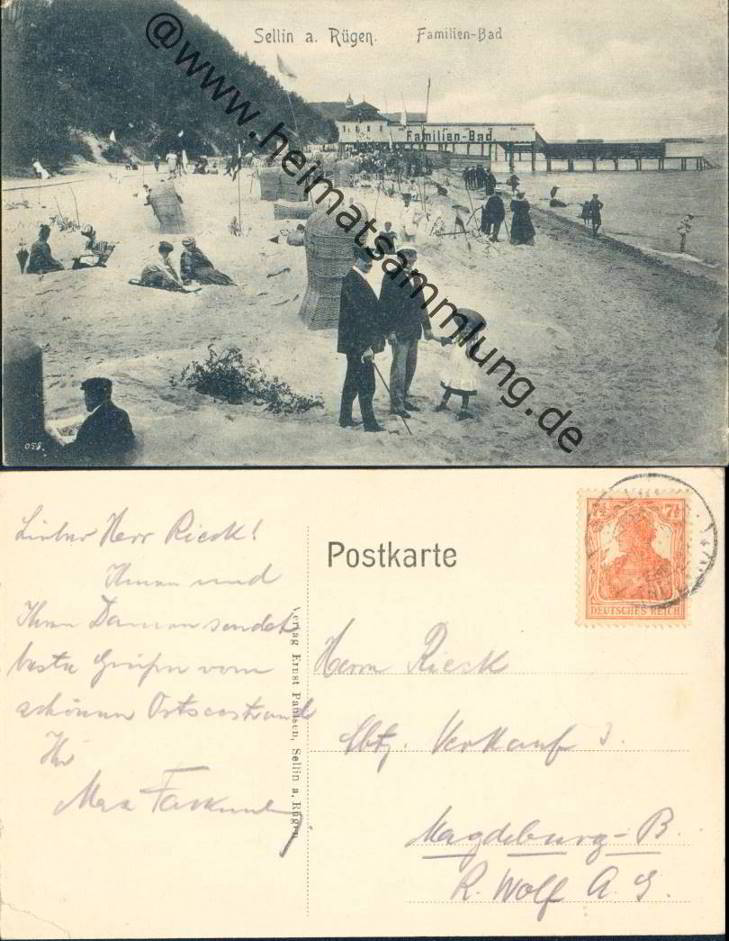 Sellin a. Rügen. Familien-Bad
Familien-Bad
@www.heimatsammlung.de
058
Lieber Herr Rieck!
Ihnen und
Ihren Damen sendet
beste Grüße vom
schönen Ostseestrand
Ihr
Max
Verlag Ernst Paulsen, Sellin a. Rügen
Postkarte
7½ 7½
DEUTSCHES REICH
Herrn Rieck
Abtg. Verkauf 3.
Magdeburg-B.
R. Wolf A. G.